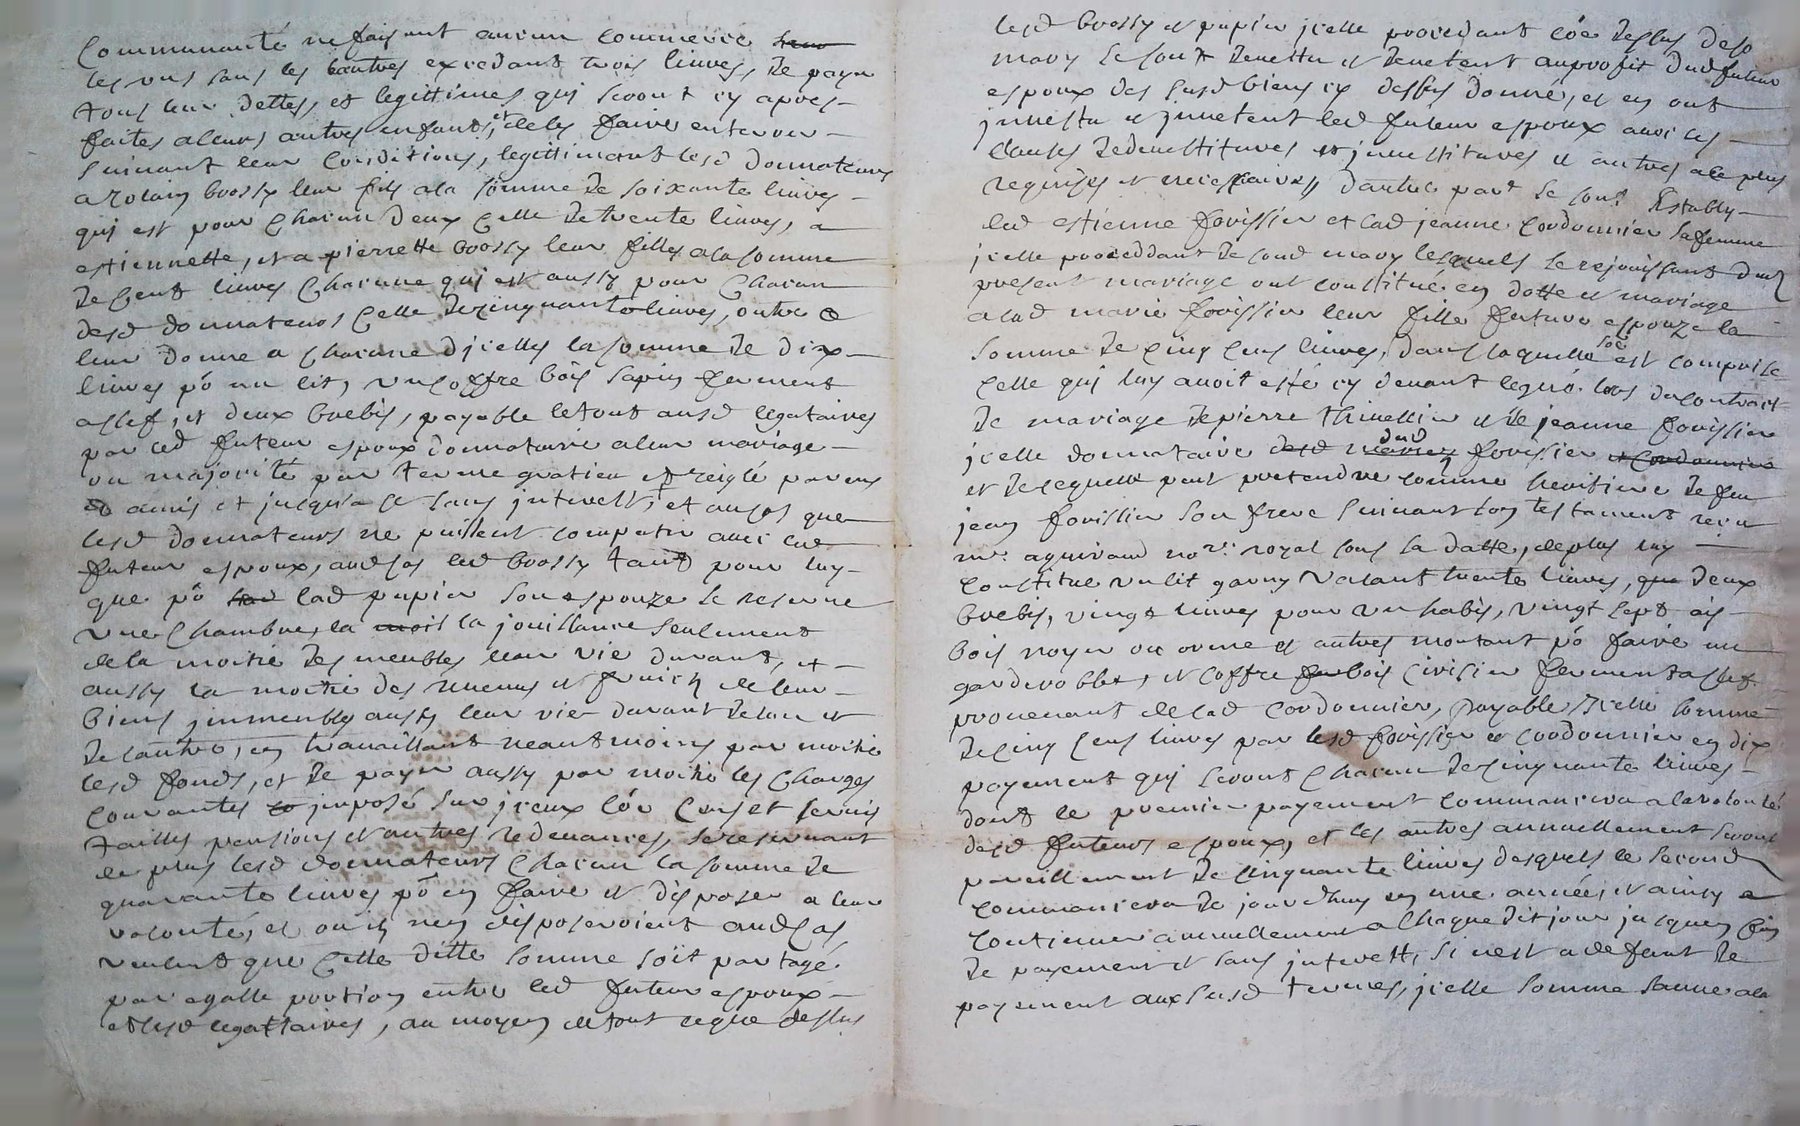 Communauté ne faisant aucun commerce
les uns sans les autres excedant trois livres, de payer
tous leur dettes, et legittimes qui seront cy apres
faites a leurs autres enfants, et de les faire enterrer
suivant leur conditions, legittimants lesd donnateurs
a rolain brossy leur fils a la somme de soixante livres
qui est pour chacun deux celle de trente livres, a
estiennette, et a pierrette brossy leur filles a la somme
de cent livres chacune qui est aussy pour chacun
desd donnateurs celle de cinquante livres, outre ce
leur donne a chacune d'jcelles la somme de dix
livres po un lit, un coffre bois sapin ferment
a clef, et deux brebis, payable le tout ausd legataires
par led futeur espoux donnataire a leur mariage
ou majorité par terme gratieu et reiglé par eux
amis et jusqu'a ce sans jnterest, et au cas que
lesd donnateurs ne puissent compatir avec led
futeur espoux, aud cas led brossy tant pour luy
que po lad papier son espouze se reserve
une chambre, la moit la jouissance seulement
de la moitié des meubles leur vie durant, et
aussy la moitié des revenus et fruicts de leur
biens jmmeubles aussy leur vie durant de l'un et
de l'autre, en travaillant neantmoins par moitié
lesd fonds, et de payer aussy par moitié les charges
courantes jmposé sur jceux coe cens et servis
tailles pensions et autres redevances, se reservant
de plus lesd donnateurs chacun la somme de
quarante livres po en faire et disposer a leur
volonté, et ou ils n'en disposeroient aud cas
veulent que cette ditte somme soit partagé
par egalle portion entre led futeur espoux
et lesd legattaires, au moyen de tout ce que dessus
lesd brossy et papier jcelle procedant coe dessus de so
mary se sont devettu et devetent au profit dud futeur
espoux des susd biens cy dessus donné, et en ont
jnvestu et jnvetent led futeur espoux avec les
clauses de devestitures et jnvestitures et autres a ce plus
requises et necessaires d'autre part se sont establÿ
led estienne fovissier et lad jeanne cordonnier sa femme
jcelle proceddant de soud mary lesquels se rejouissant dud
present mariage ont constitué en dotte et mariage
a lad marie fovissier leur fille future espouze la
somme de cinq cens livres, dans laquelle soe est comprise
celle qui luy avoit esté cy devant legué lors du contract
de mariage de pierre thivellier et de jeanne fovissier
jcelle donnataire dud fovissier et cordonnier
et de ce quelle peut pretendre comme heritiere de feu
jean fovissier son frere suivant son testament receu
me aguiraud nore royal sous sa datte, de plus luy
constitue un lit garny valant trente livres, deux
brebis, vingt livres pour un habis, vingt sept ais
bois noyer ou orme et autres montant po faire une
garderobbe, et coffre bois cirisier ferment a clef
provenant de lad cordonnier, payable jcelle somme
de cinq cens livres par lesd fovissier et cordonnier en dix
payement qui seront chacun de cinquante livres
dont le premier payement commancera a la volonté
desd futeurs espoux, et les autres annuellement seront
pareillement de cinquante livres desquels le second
commancera de jourdhuy en une année, et ainsy a
continuer annuellement a chaque dit jour jusques fin
de payement et sans jnterest, si n'est a deffaut de
payement aux susd termes, jcelle somme sauve a la